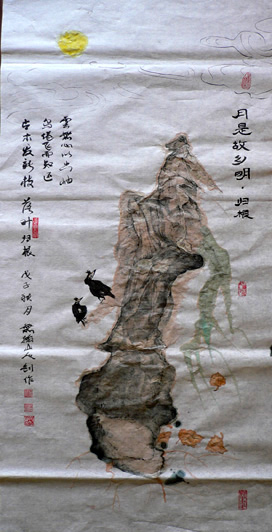 月是故乡明·归根
云无心以出岫
鸟倦飞而知还
古木发新枝 落叶归根 戊子秋月
制作